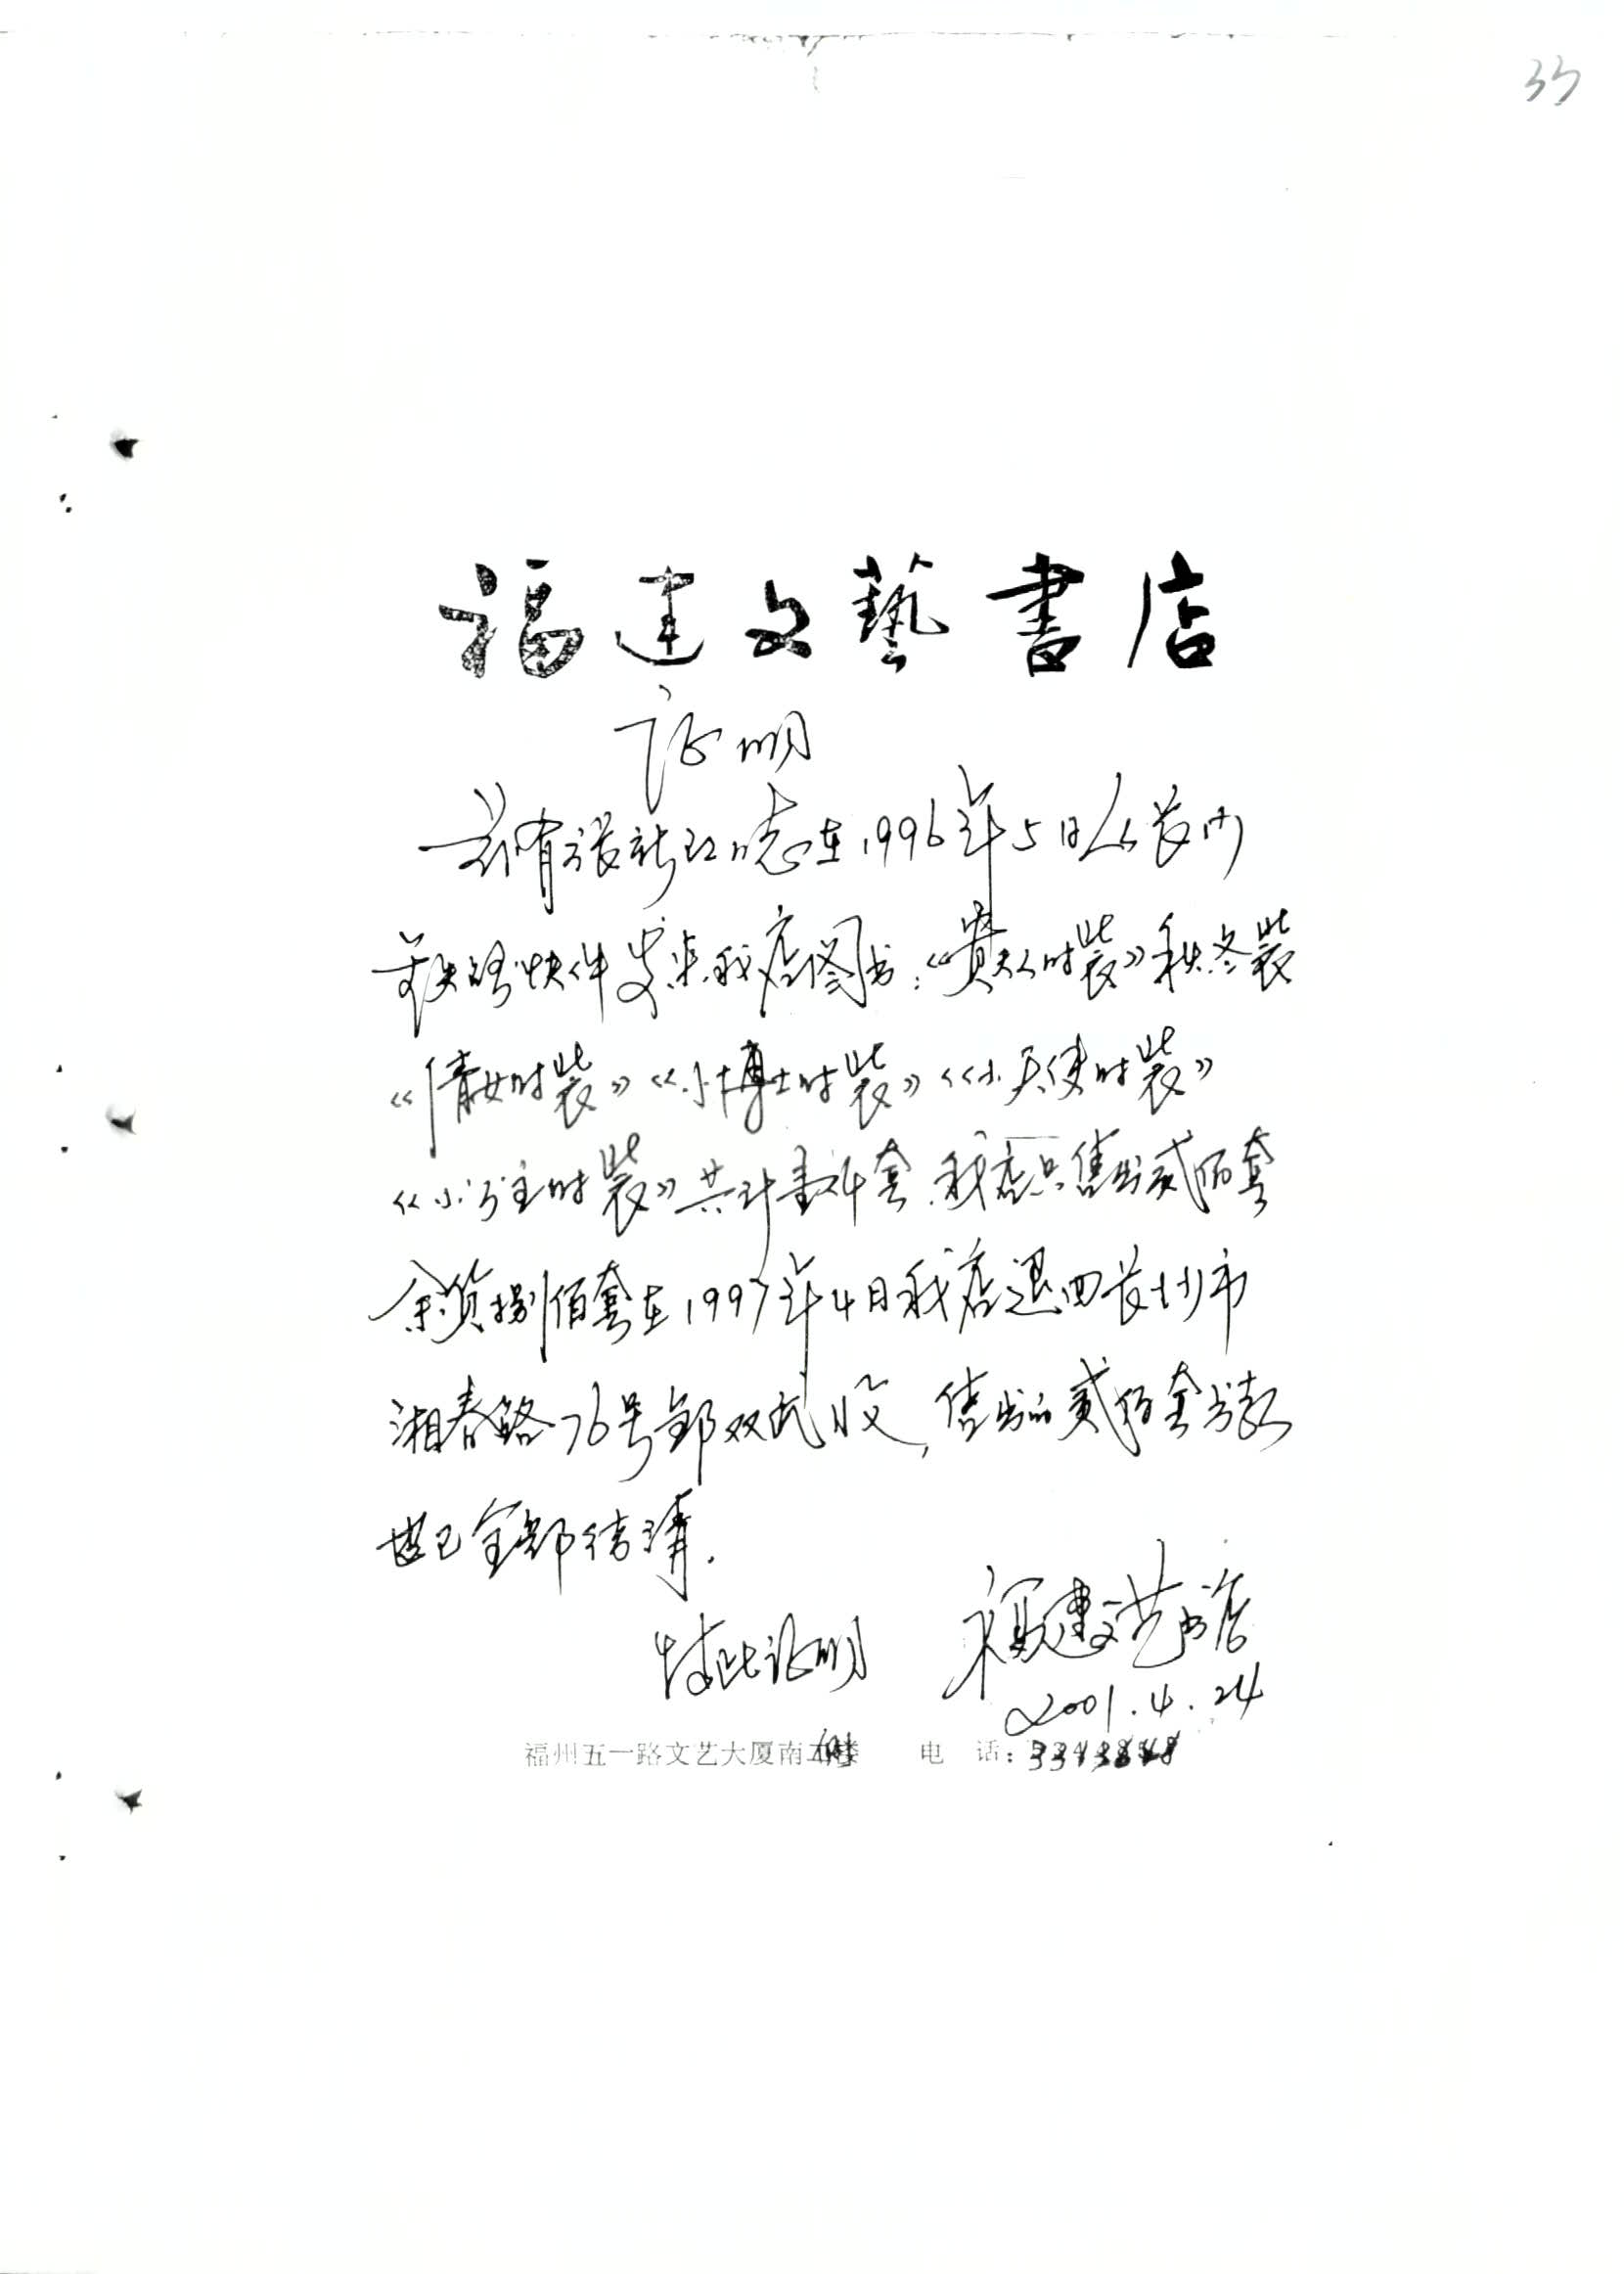 33
福建文藝書店
证明
兹有张新红同志在1996年5月从长沙
铁路快件发来我店图书:《贵夫人时装》秋冬装
《倩女时装》《小博士时装》《小天使时装》
《小公主时装》共计壹仟套,我店只售出贰佰套
余货捌佰套在1997年4月我店退回长沙市
湘春路76号邹双武收,售出的贰佰套书款
也已全部结清.
特此证明 福建文艺书店
2001.4.24
福州五一路文艺大厦南楼 电 话: